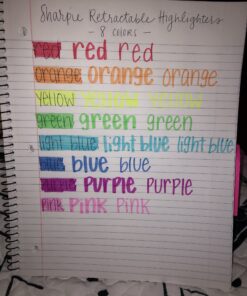 Sharpie Retractable Highlighters
- 8 COLORS -
red red red
orange orange orange
yellow yellow yellow
green green green
light blue light blue light blue
blue blue blue
purple purple purple
pink pink pink